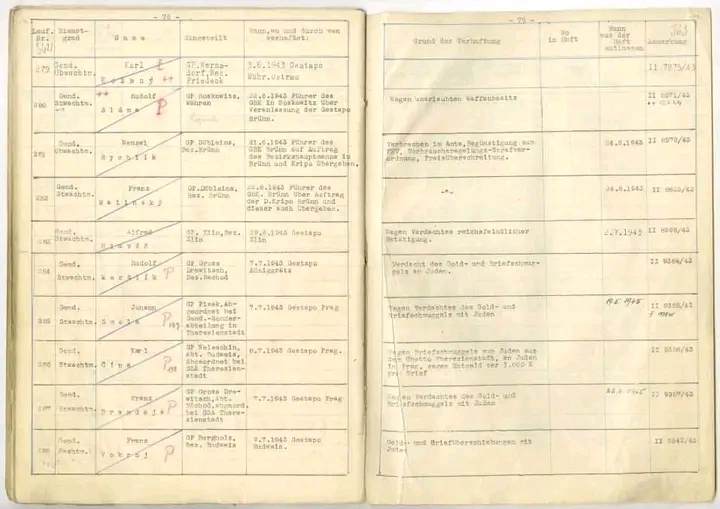 - 78 -
Lauf. Nr.
Dienst- grad
N a m e
Eingeteilt
Wann, wo und durch wen verhaftet:
279 Gend. Obwachtm.
Karl
GP. Berns-
dorf, Bez.
Friedeck
3.6.1943 Gestapo
Mähr. Ostrau
280 Gend. Stwachtm.
Rudolf
S l á m a
P
GP Boskowitz,
Mähren
22.6.1943 Führer des
GBK in Boskowitz über
Veranlassung der Gestapo
Brünn.
281 Gend. Stwachtm.
Wenzel
R y c h l i k
Bez. Brünn
21.6.1943 Führer des
GBK Brünn auf Auftrag
des Bezirkshauptmanns in
Brünn und Kripo übergeben.
282 Gend. Stwachtm.
Franz
M a l i n s k ý
Bez. Brünn
22.6.1943 Führer des
GBK. Brünn über Auftrag
der D.Kripo Brünn und
dieser auch übergeben.
283 Gend. Stwachtm.
Alfred
GP. Zlin, Bez.
Zlin
29.6.1943 Gestapo
Zlin
284 Gend. Stwachtm.
Rudolf
P
GP Gross
Drewitsch,
Bez. Nachod
7.7.1943 Gestapo
Königgrätz
285 Gend. Stwachtm.
Johann
S m o l a
P
GP Pisek, Ab-
geordnet bei
Gend.-Sonder-
abteilung in
Theresienstadt
7.7.1943 Gestapo Prag
286 Gend. Stwachtm.
Karl
P
GP Weleschin,
Abt. Budweis,
Abgeordnet bei
GSA Theresien-
stadt
8.7.1943 Gestapo Prag.
287 Gend. Stwachtm.
Franz
P
GP Gross Dre-
witsch, Abt.
Náchod, abgeord.
bei GSA There-
sienstadt
7.7.1943 Gestapo Prag
288 Gend. Wachtm.
Franz
V o k r o j
P
GP Bergholz,
bez. Budweis
9.7.1943 Gestapo
Budweis.
- 79 -
363
Grund der Verhaftung
Wo in Haft
Wann aus der Haft entlassen
Anmerkung
II 7875/43
Wegen unerlaubten Waffenbesitz
II 8971/43
Verbrechen im Amte, Begünstigung zum
Verbrauchsregelungs-Strafver-
ordnung, Preisüberschreitung.
24.6.1943
II 8972/43
-"-
24.6.1943
Wegen Verdachtes reichsfeindlicher
Betätigung.
2.7.1943
Verdacht des Geld- und Briefschmug-
gels an Juden.
II 9384/43
Wegen Verdachtes des Geld- und
Briefschmuggels mit Juden
II 9385/43
Wegen Briefschmuggels zum Juden aus
dem Ghetto Theresienstadt, an Juden
in Prag, gegen Entgeld per 1.000 K
pro Brief
II 9386/43
Wegen Verdachtes des Geld- und
Briefschmuggels mit Juden
II 9387/43
Geld- und Briefüberschiebungen mit
Juden
II 9542/43